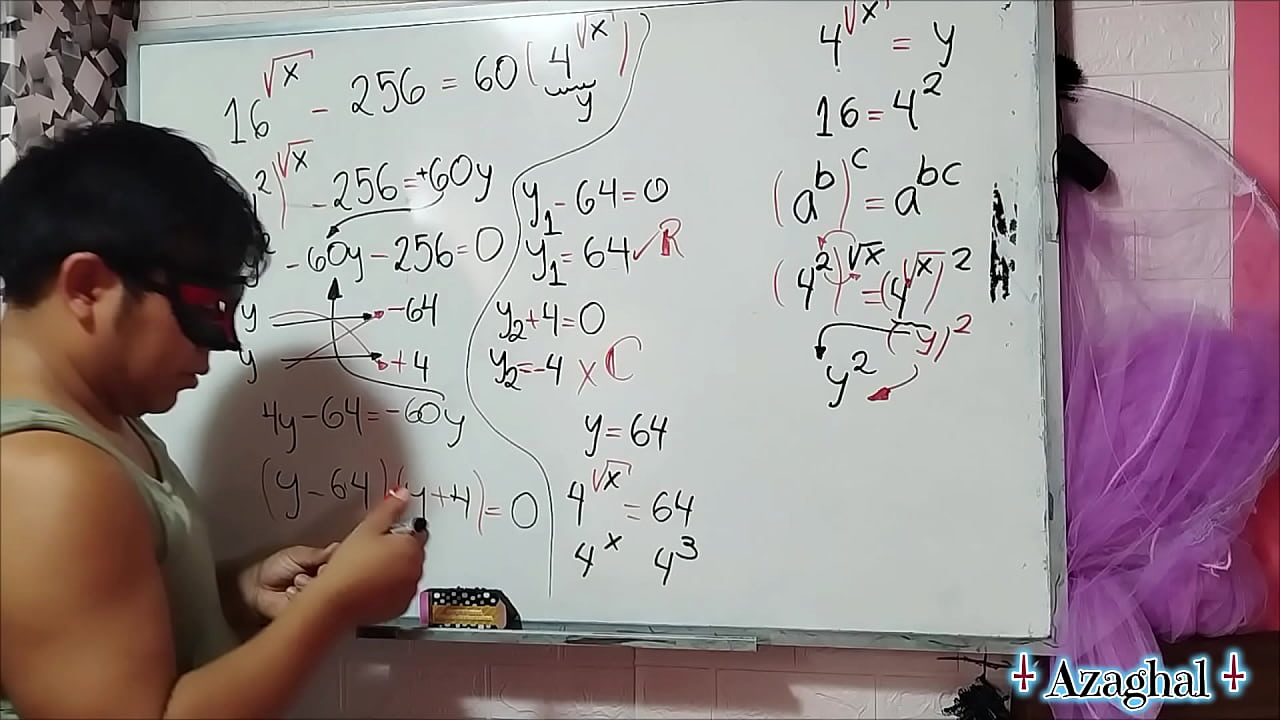 16^√x - 256 = 60(4^√x)
y
2)^√x - 256 = +60y
- 60y - 256 = 0
y -64
y +4
4y - 64 = -60y
(y - 64)(y + 4) = 0
y₁ - 64 = 0
y₁ = 64 ✓ R
y₂ + 4 = 0
y₂ = -4 x C
y = 64
4^√x = 64
4^x 4^3
4^√x = y
16 = 4^2
(a^b)^c = a^bc
(4^2)^√x = (4^√x)^2
(y)^2
y^2
Azaghal